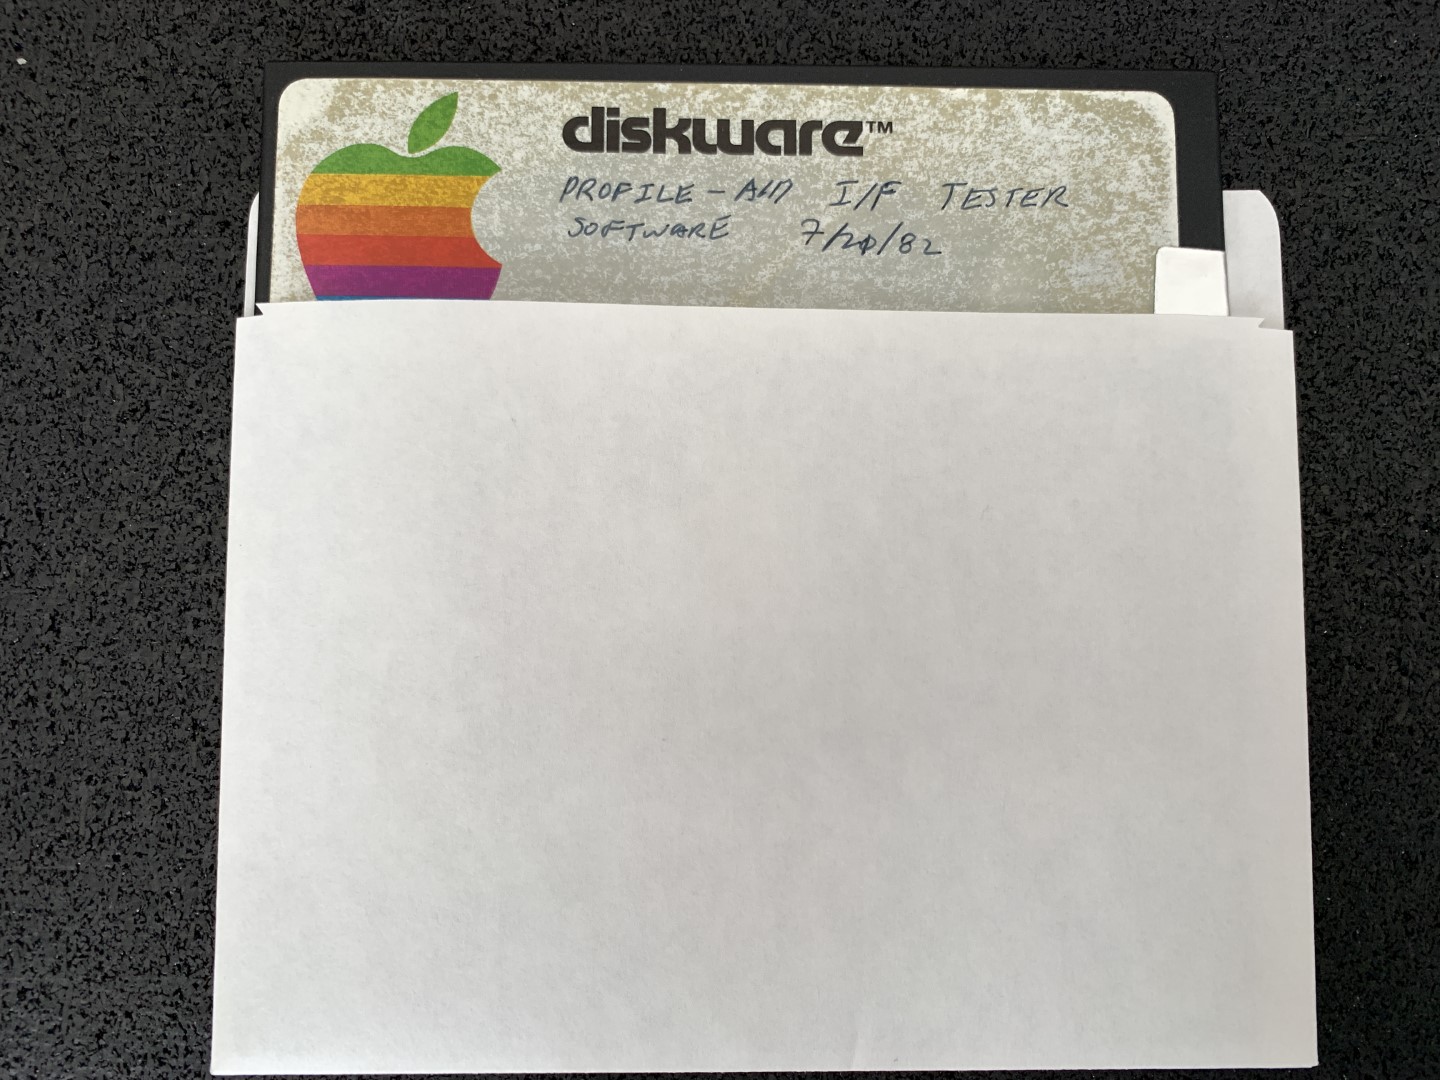 diskware™
PROFILE - I/F TESTER
SOFTWARE 7/20/82